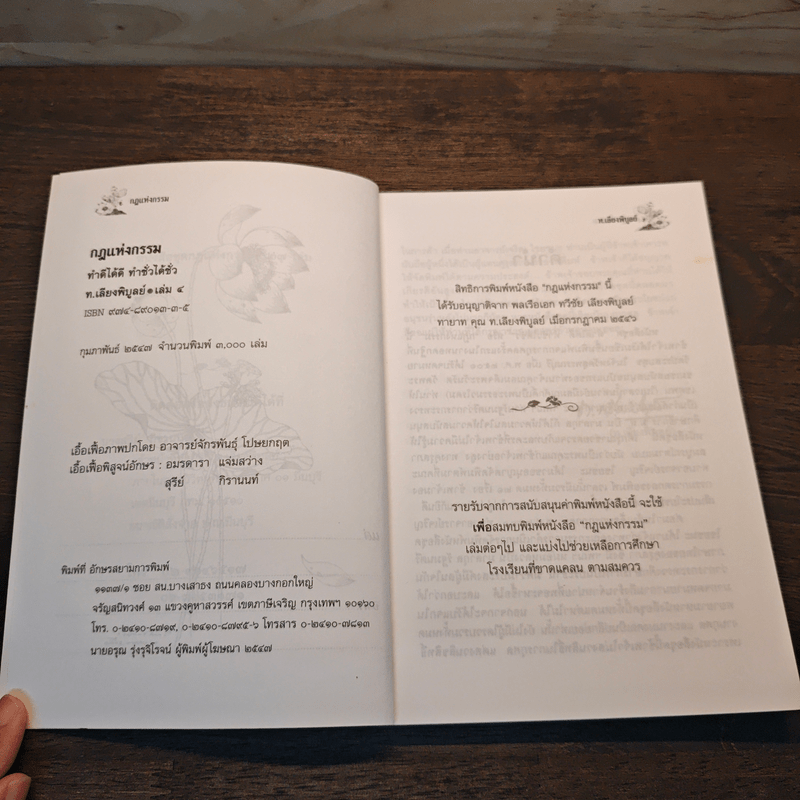 กฎแห่งกรรม
กฎแห่งกรรม
ทำดีได้ดี ทำชั่วได้ชั่ว
ท.เลียงพิบูลย์ ๑ เล่ม ๔
ISBN ๙๗๔-๘๙๐๑๓-๓-๕
กุมภาพันธ์ ๒๕๔๗ จำนวนพิมพ์ ๓,๐๐๐ เล่ม
เอื้อเฟื้อภาพปกโดย อาจารย์จักรพันธุ์ โปษยกฤต
เอื้อเฟื้อพิสูจน์อักษร : อมรดารา แจ่มสว่าง
สุรีย์ กิรานนท์
พิมพ์ที่ อักษรสยามการพิมพ์
๑๑๓๗/๑ ซอย สน.บางเสาธง ถนนคลองบางกอกใหญ่
จรัญสนิทวงศ์ ๑๓ แขวงคูหาสวรรค์ เขตภาษีเจริญ กรุงเทพฯ ๑๐๑๖๐
โทร. ๐-๒๔๑๐-๘๗๑๙, ๐-๒๔๑๐-๘๗๙๕-๖ โทรสาร ๐-๒๔๑๐-๗๘๑๓
นายอรุณ รุ่งรุจิโรจน์ ผู้พิมพ์ผู้โฆษณา ๒๕๔๗
ท.เลียงพิบูลย์
สิทธิการพิมพ์หนังสือ "กฎแห่งกรรม" นี้
ได้รับอนุญาติจาก พลเรือเอก ทวีชัย เลียงพิบูลย์
ทายาท คุณ ท.เลียงพิบูลย์ เมื่อกรกฎาคม ๒๕๔๖
รายรับจากการสนับสนุนค่าพิมพ์หนังสือนี้ จะใช้
เพื่อสมทบพิมพ์หนังสือ "กฎแห่งกรรม"
เล่มต่อๆไป และแบ่งไปช่วยเหลือการศึกษา
โรงเรียนที่ขาดแคลน ตามสมควร